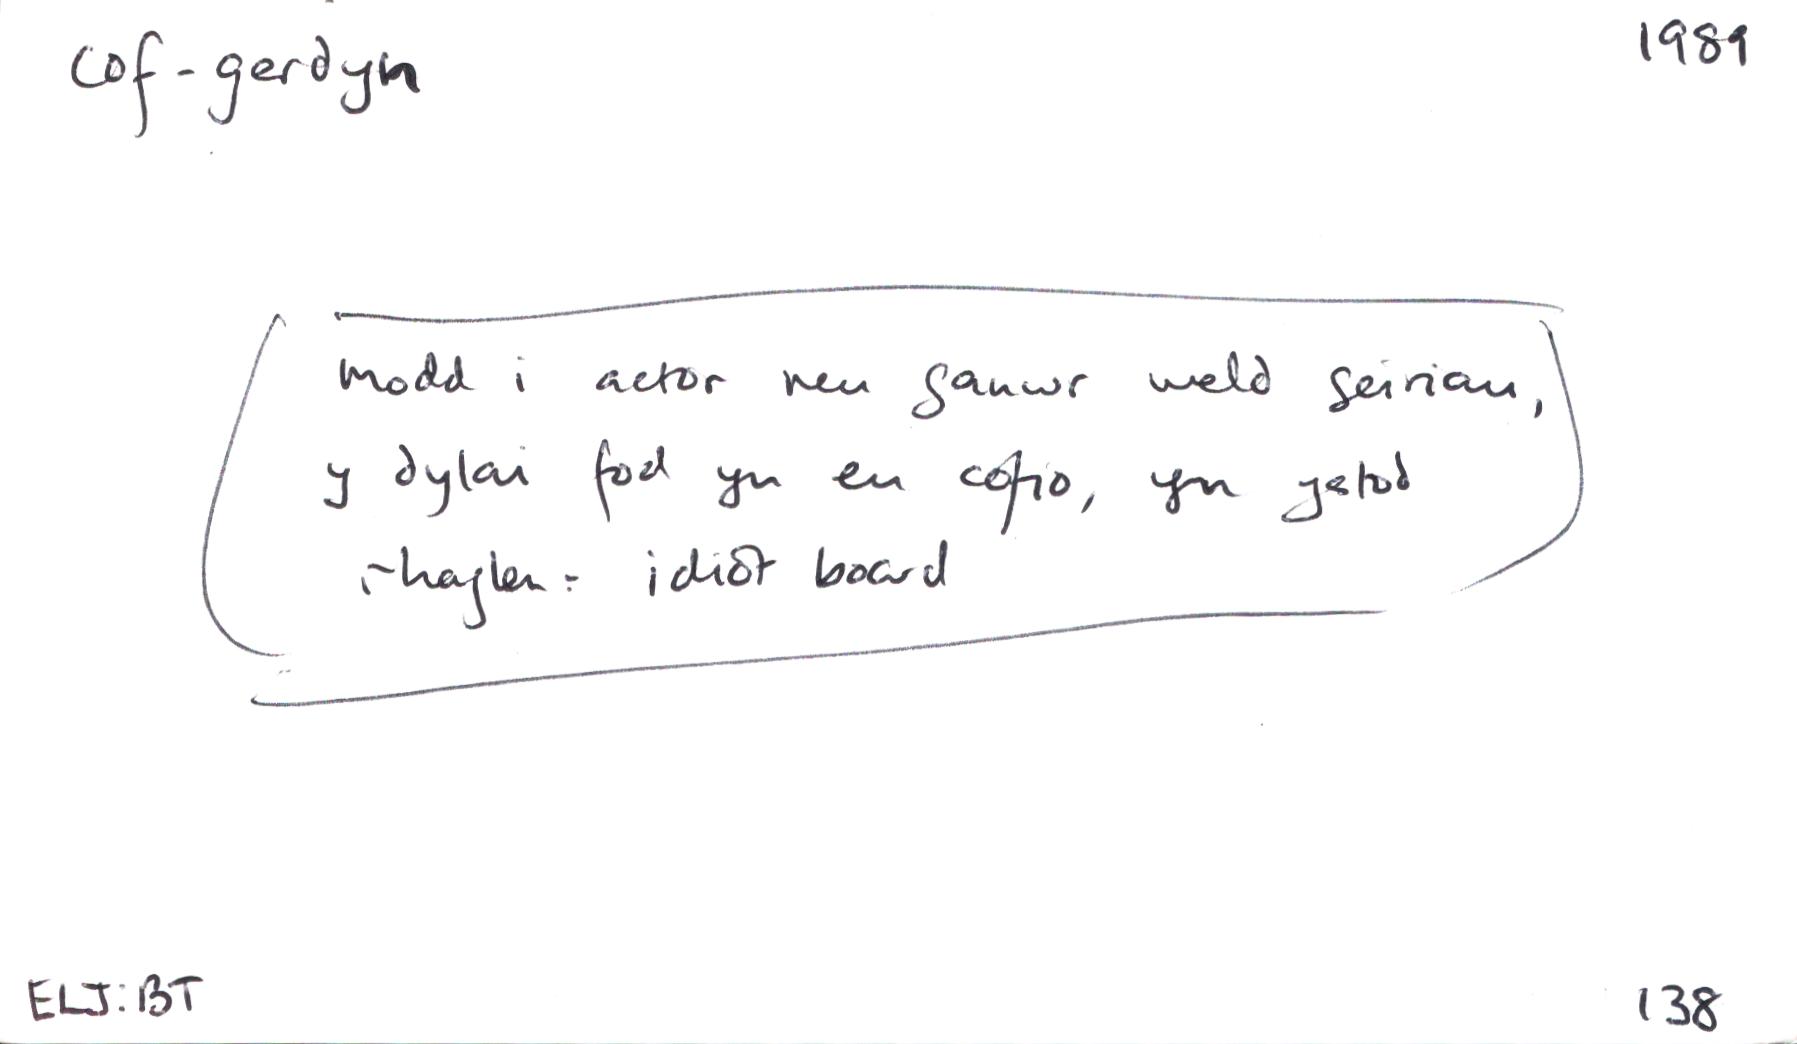 cof-gerdyn 1989
modd i actor neu ganwr weld geiriau,
y dylai fod yn eu cofio, yn ystod
rhaglen: idiot board
ELJ:BT 138